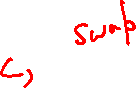 swap
c,